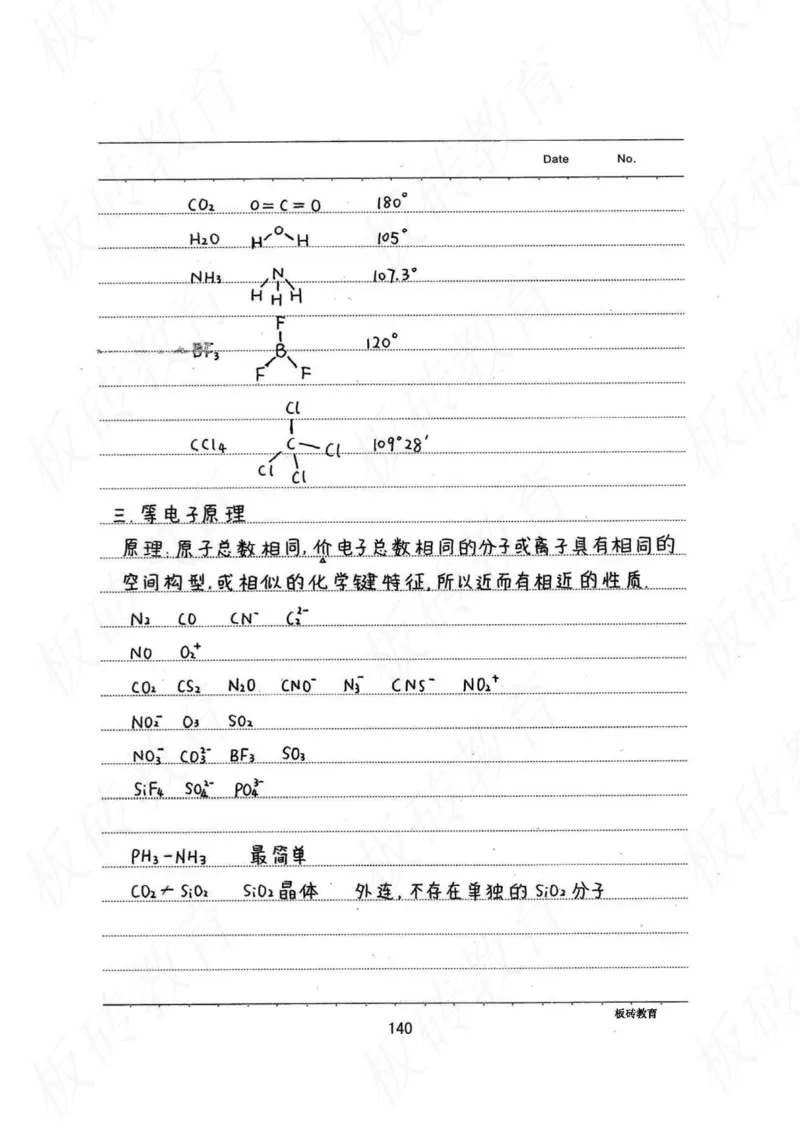 Date No.
CO₂ O=C=O 180°
H₂O H O H 105°
NH₃ N H H H 107.3°
BF₃ F B F F 120°
CCl₄ Cl C Cl Cl Cl 109°28′
三.等电子原理
原理:原子总数相同,价电子总数相同的分子或离子具有相同的
空间构型,或相似的化学键特征,所以近而有相近的性质.
N₂ CO CN⁻ C₂²⁻
NO O₂⁺
CO₂ CS₂ N₂O CNO⁻ N₃⁻ CNS⁻ NO₂⁺
NO₂⁻ O₃ SO₂
NO₃⁻ CO₃²⁻ BF₃ SO₃
SiF₄ SO₄²⁻ PO₄³⁻
PH₃-NH₃ 最简单
CO₂≁SiO₂ SiO₂晶体 外连,不存在单独的SiO₂分子
板砖教育
140